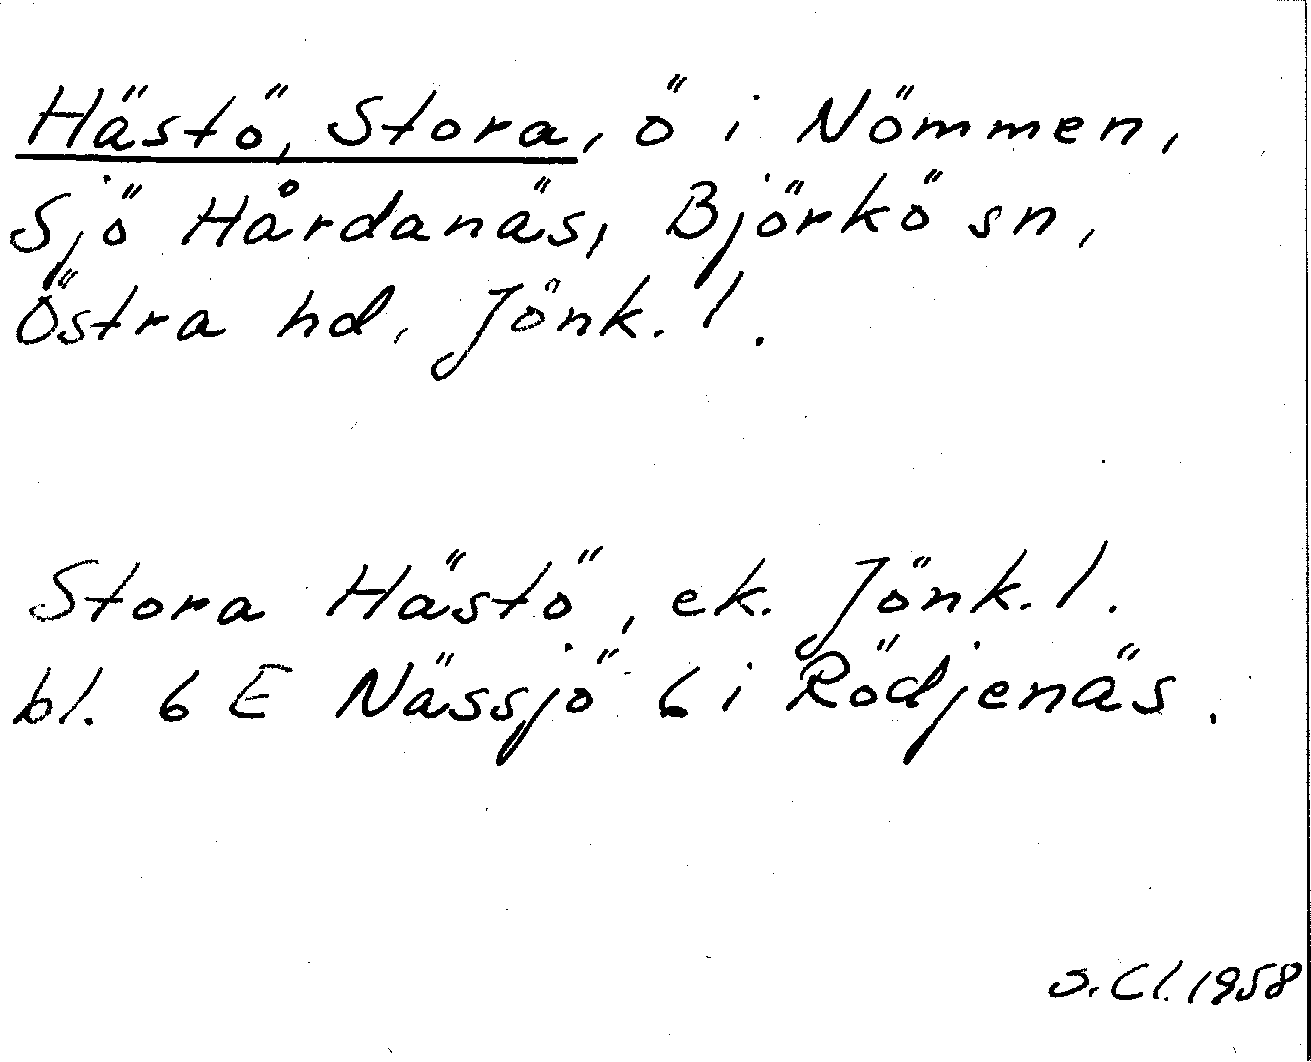 Hästö, Stora, ö i Nömmen,
Sjö Hårdanäs, Björkö sn,
Östra hd, Jönk. l.
Stora Hästö, ek. Jönk. l.
bl. 6 E Nässjö 6 i Rödjenäs.
S. Cl. 1958